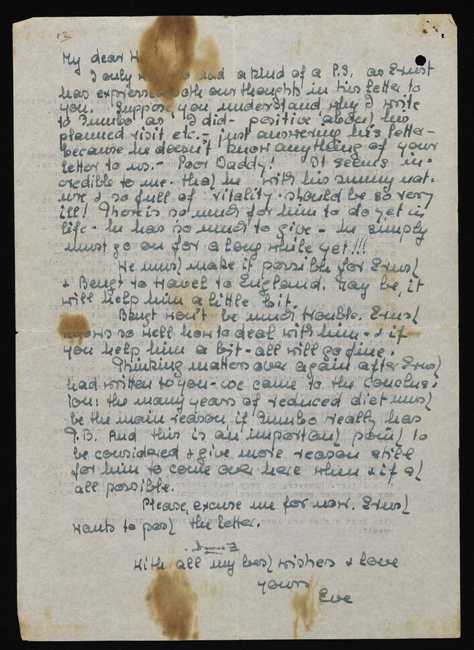 13
My dear H
I only to add a kind of a P.S. as Ernst
has expressed both our thoughts in his letter to
you. Suppose, you understand why I write
to Jumbo as I did - positive about his
planned visit etc. - just answering his letter -
because he doesn't know anything of your
letter to us. - Poor Daddy! It seems in-
credible to me. that he with his sunny nat-
ure & so full of vitality should be so very
ill! There is so much for him to do yet in
life - he has so much to give - he simply
must go on for a long while yet!!!
We must make it possible for Ernst
& Bengt to travel to England. May be, it
will help him a little bit.
Bengt won't be much trouble. Ernst
knows so well how to deal with him - & if
you help him a bit - all will go fine.
Thinking matters over again after Ernst
had written to you - we came to the conclus-
ion: the many years of reduced diet must
be the main reason if Jumbo really has
T.B. And this is an important point to
be considered & give more reason still
for him to come over here when & if at
all possible.
Please, excuse me for now. Ernst
wants to post the letter.
With all my best wishes & love
yours
Eve